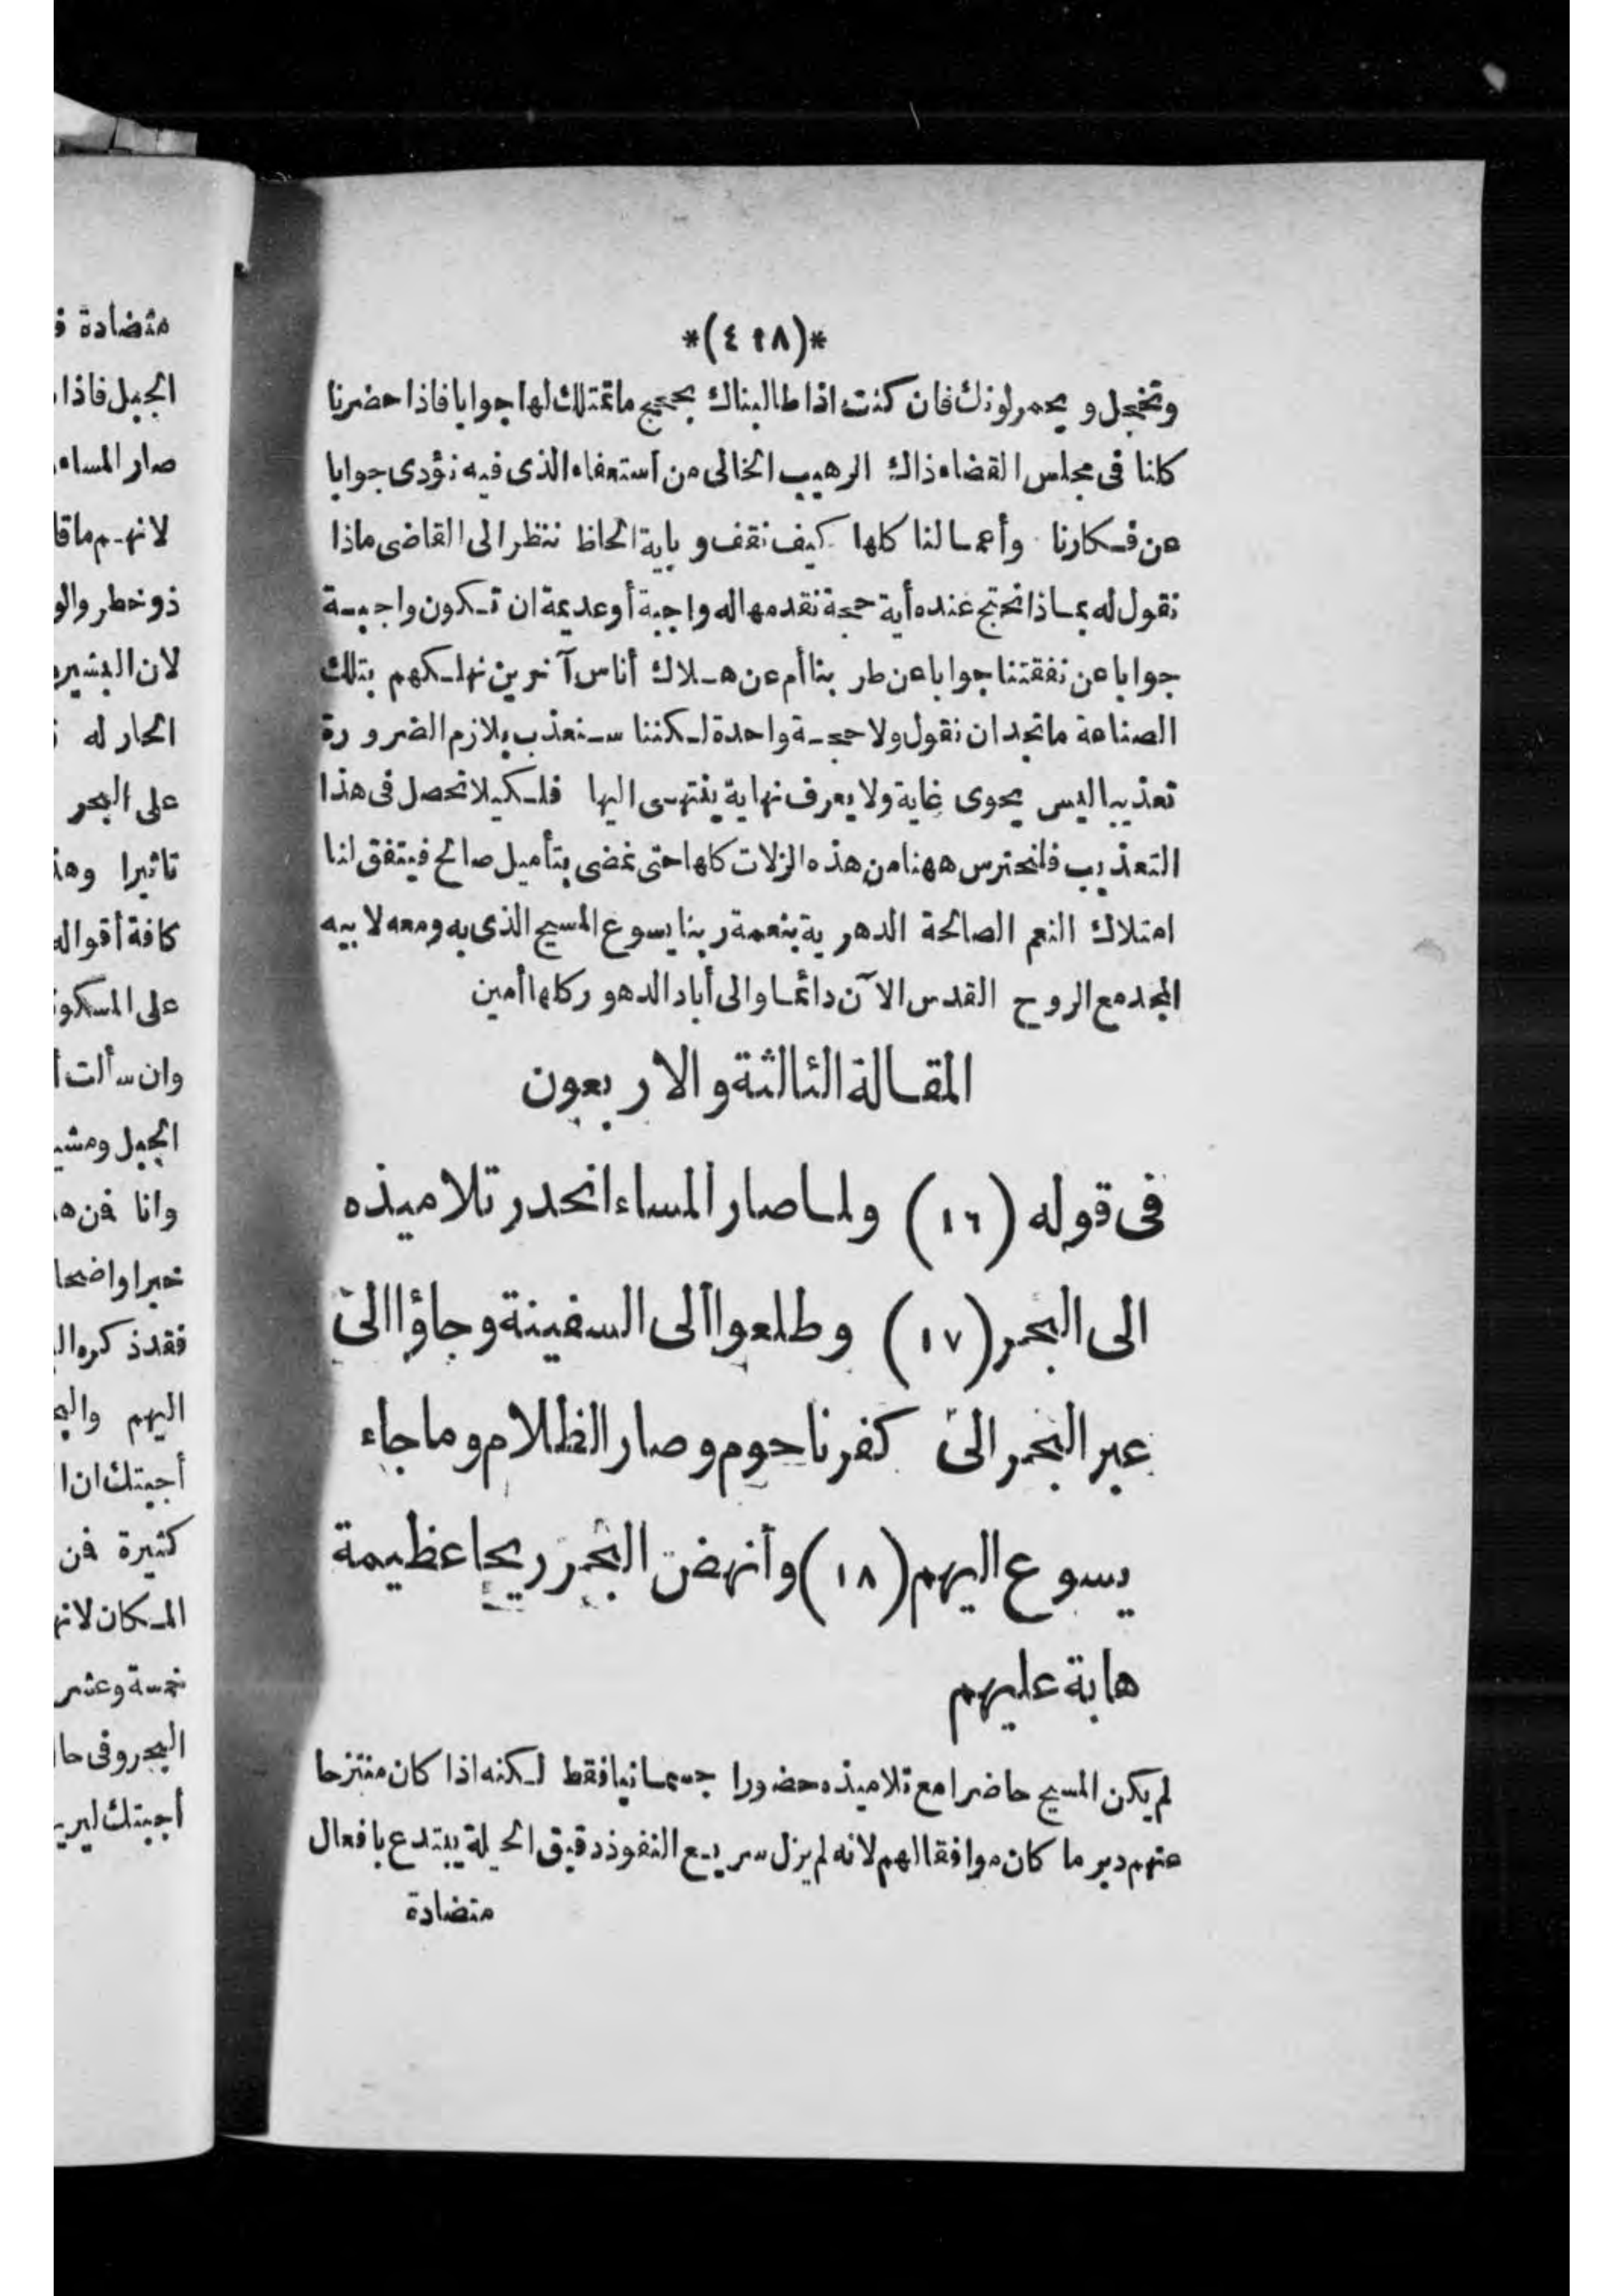 *(٤٢٨)*
وتخجل و يحمر لونك فان كنت اذا طالبناك بحجج ما تمتلك لها جوابا فاذا حضرنا
كلنا فى مجلس القضاء ذاك الرهيب الخالى من استعفاء الذى فيه نؤدى جوابا
عن فكارنا وأعمالنا كلها كيف نقف و باية الحاظ ننظر الى القاضى ماذا
نقول له بماذا نحتج عنده أية حجة نقدمها له واجبة أو عديمة ان تكون واجبة
جوابا عن نفقتنا جوابا عن طر بنا أم عن هلاك أناس آخرين نهلكهم بتلك
الصناعة ما نجد ان نقول ولا حجة واحدة لكننا سنعذب بلازم الضرورة
تعذيبا ليس يحوى غاية ولا يعرف نهاية ينتهى اليها فلكيلا نحصل فى هذا
التعذيب فلنحترس ههنا من هذه الزلات كلها حتى نمضى بتأميل صالح فيتفق لنا
امتلاك النعم الصالحة الدهرية بنعمة ربنا يسوع المسيح الذى به ومعه لابيه
المجد مع الروح القدس الآن دائما والى أباد الدهور كلها أمين
المقالة الثالثة والاربعون
فى قوله (١٦) ولما صار المساء انحدر تلاميذه
الى البحر (١٧) وطلعوا ألى السفينة وجاؤا الى
عبر البحر الى كفرناحوم وصار الظلام وما جاء
يسوع اليهم (١٨) وأنهض البحر ريحا عظيمة
هابة عليهم
لم يكن المسيح حاضرا مع تلاميذه حضورا جسمانيا فقط لكنه اذا كان منتزحا
عنهم دبر ما كان موافقا لهم لانه لم يزل سريع النفوذ دقيق الحيلة يبتدع بافعال
متضادة
متضادة
الجبل فاذا
صار المساء
لانهم ماقا
ذو خطر والو
لان البشير
الحار له
على البحر
تاثيرا وهذ
كافة أقواله
على المسكو
وان سألت أ
الجبل ومشي
وانا فن ه
خبرا واضحا
فقد ذكره ال
اليهم والبح
أجبتك ان ا
كثيرة فن
المكان لانه
خمسة وعشر
البحر وفى حا
أجبتك ليري